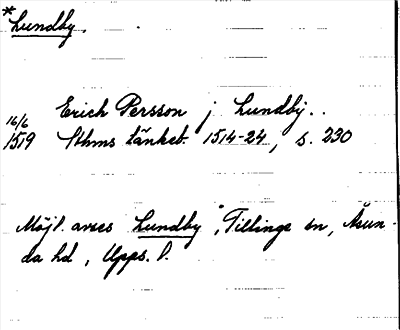 *Lundby.
Erich Persson j Lundby..
16/6
1519 Sthms tänkeb. 1514-24, s. 230
Möjl. avses Lundby, Tillinge sn, Åsun-
da hd, Upps. l.